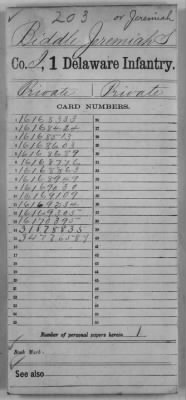 203 or Jeremiah
Biddle, Jeremiah S
Co. , 1 Delaware Infantry.
Private Private
CARD NUMBERS.
1 16168333 26
2 16168424 27
3 16168513 28
4 16168603 29
5 16168689 30
6 16168776 31
7 16168863 32
8 16168949 33
9 16169030 34
10 16169109 35
11 16169234 36
12 16169305 37
13 16170395 38
14 31178835 39
15 34776589 40
16 41
17 42
18 43
19 44
20 45
21 46
22 47
23 48
24 49
25 50
Number of personal papers herein 1
Book Mark:
See also